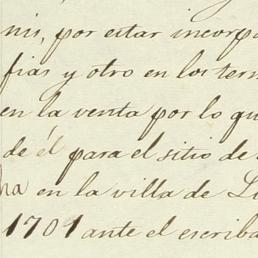 nis, por estar incorpo
fias y otro en los term
en la venta por lo qu
de él para el sitio de
ha en la villa de
1701 ante el escriba